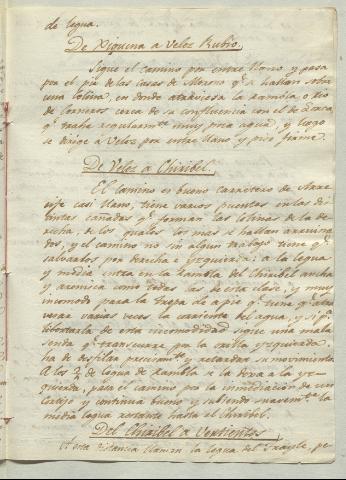 de legua.
De Xiquena a Velez Rubio.
Sigue el camino por entre llano y pasa
por el pie de las casas de Moreno q.e se hallan sobre
una Colina, en donde atraviesa la rambla o Rio
de Corneros cerca de su confluencia con el de
q.e trahe regularm.te muy poca agua, y luego
se dirige à Velez por entre llano y piso firme.
De Velez a Chiribel.
El camino es bueno carretero de
casi llano, tiene varios puentes en las dis-
tintas cañadas q.e forman las colinas de la de-
recha, de los quales los mas se hallan arruina-
dos, y el camino no sin algun trabajo tiene q.e
salvarlos por derecha e yzquierda: a la legua
y media entra en la Rambla del Chiribel ancha
y arenisca como todas las de esta clase, y muy
incomodo para la tropa de a pie q.e tiene q.e atra
vesar varias veces la corriente del agua, y si p.a
libertarla de esta incomodidad sigue una mala
senda q.e transcurre por la orilla yzquierda
ha de desfilar precisam.te y retardar su movimiento.
A los 3/4 de legua de Rambla se la dexa a la yz-
quierda, pasa el camino por la inmediacion de un
Cortijo y continua bueno y subiendo suavem.te la
media legua restante hasta el Chiribel.
Del Chiribel a Vertientes
A esta distancia llaman la legua del Frayle, pe